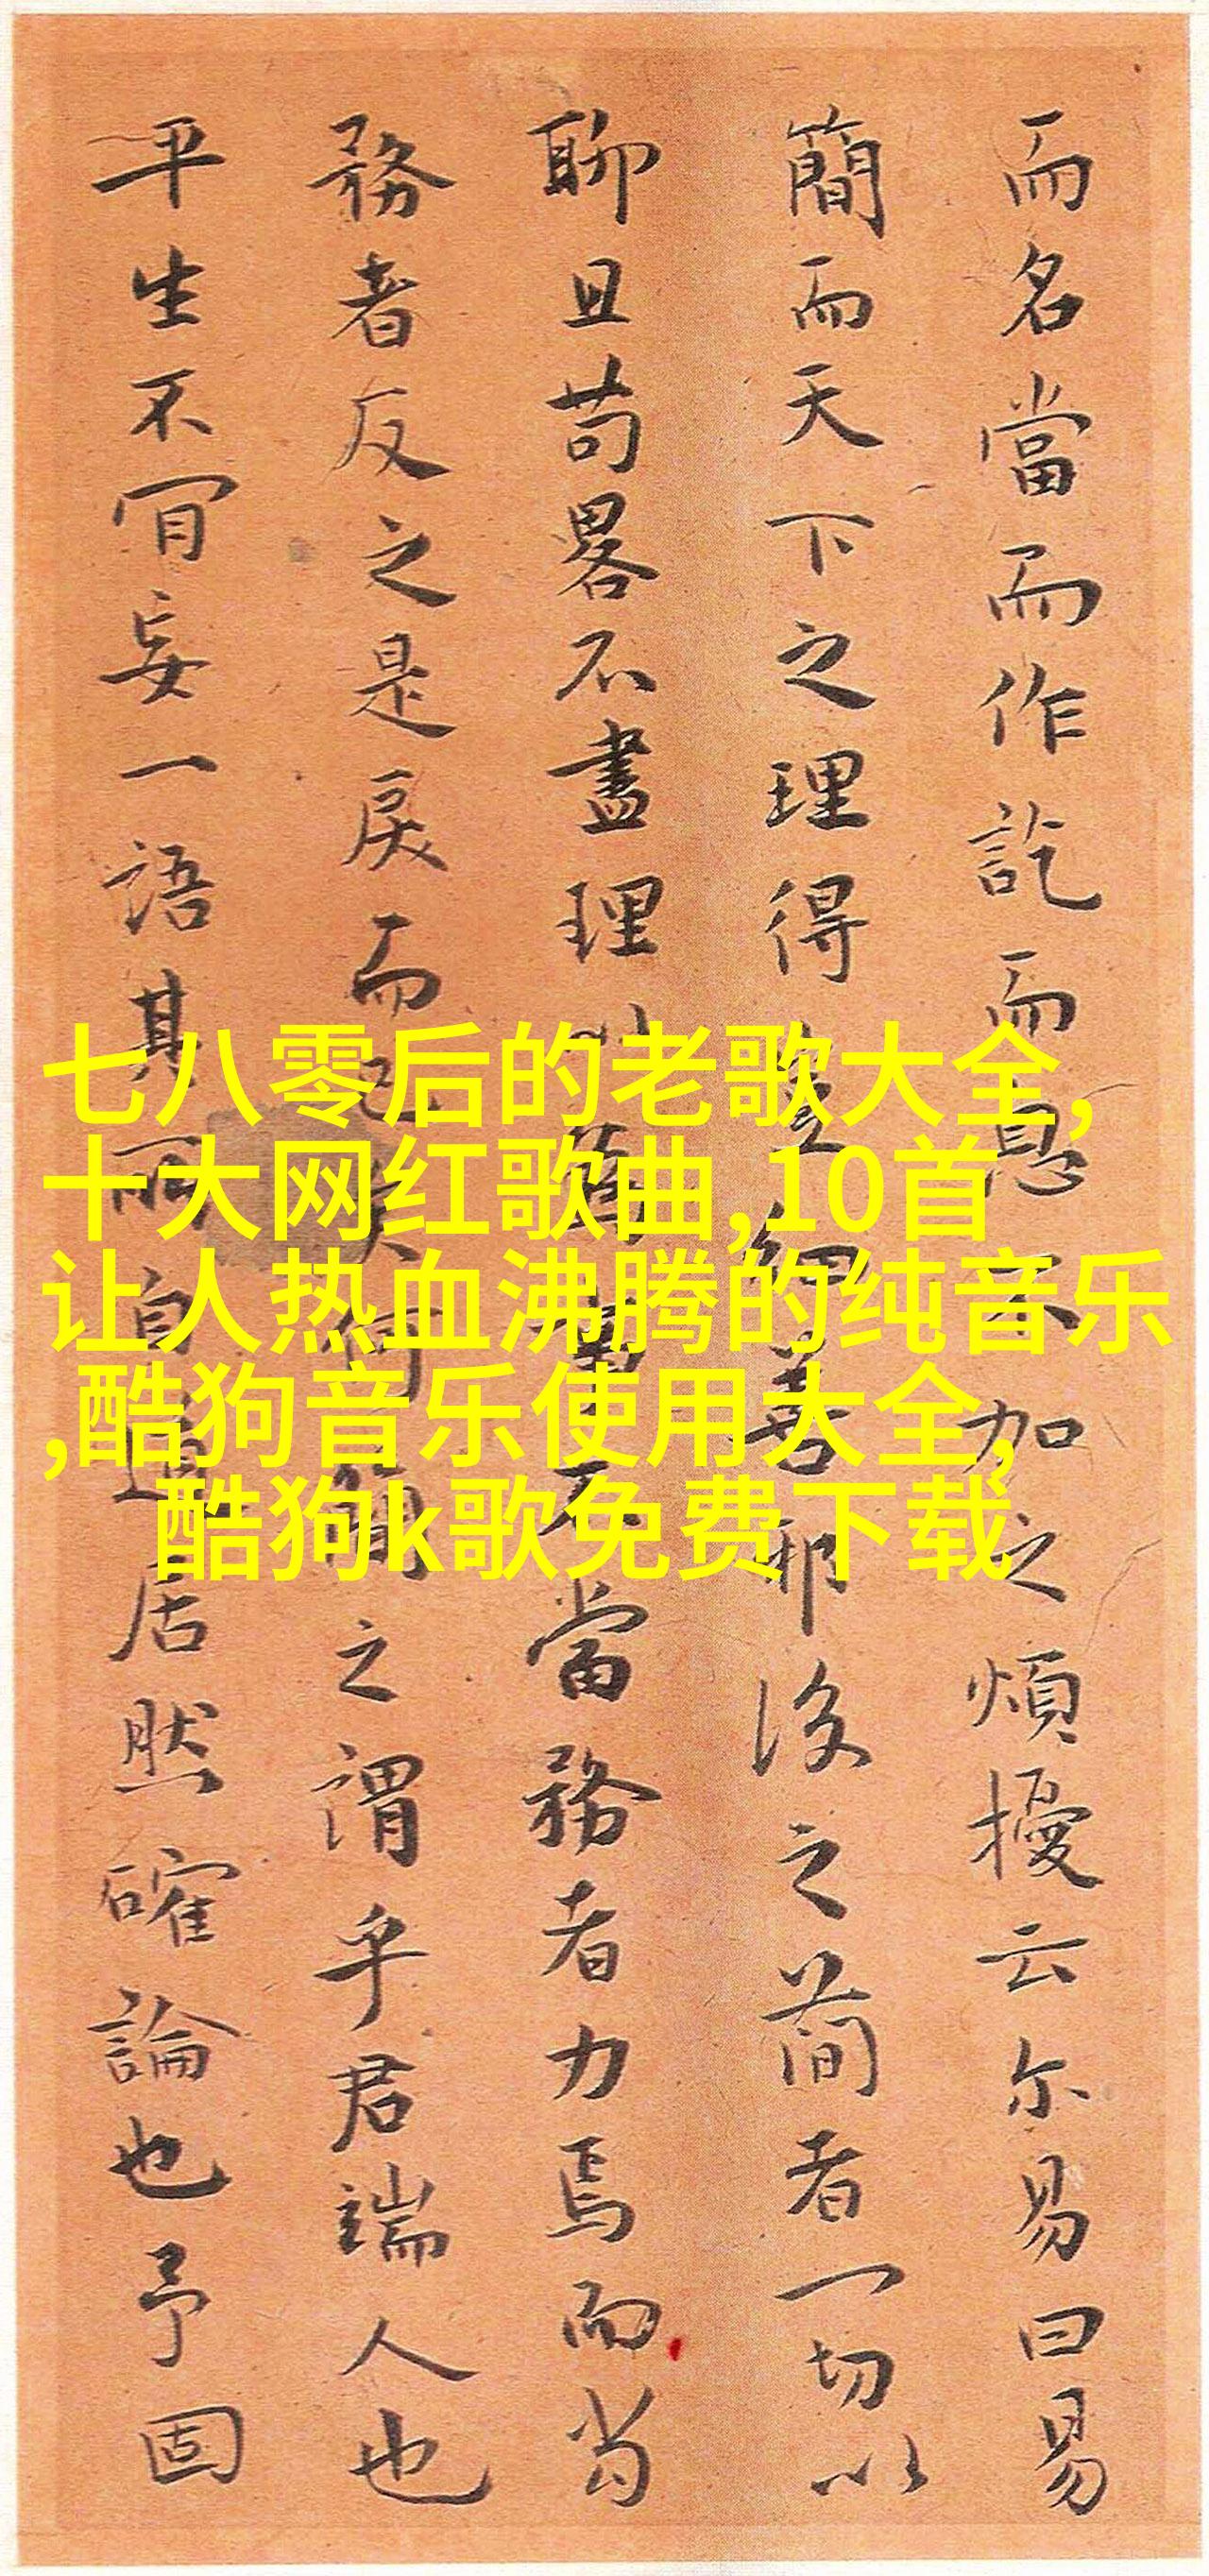 而名當而作訖而息不加之煩擾云尔易曰易
簡而天下之理得豈細善耶後之簡者一切以
聊且苟畧不盡理以事不當務者力焉而當
務者反之是戾而已矣何簡之謂乎君端人也
平生不肎妄一語其所自道居然確論也予固
七八零后的老歌大全,
十大网红歌曲,10首
让人热血沸腾的纯音乐
,酷狗音乐使用大全,
酷狗k歌免费下载